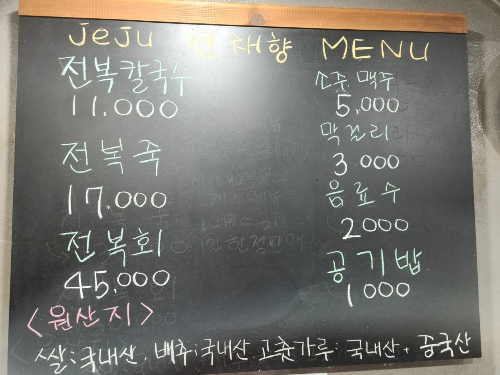 JeJu 천재향 MENU
전복칼국수
11.000
전복죽
17.000
전복회
45.000
소주 맥주
5,000
막걸리
3000
음료수
2000
공기밥
1000
<원산지>
쌀:국내산. 배추:국내산 고춘가루: 국내산 + 중국산